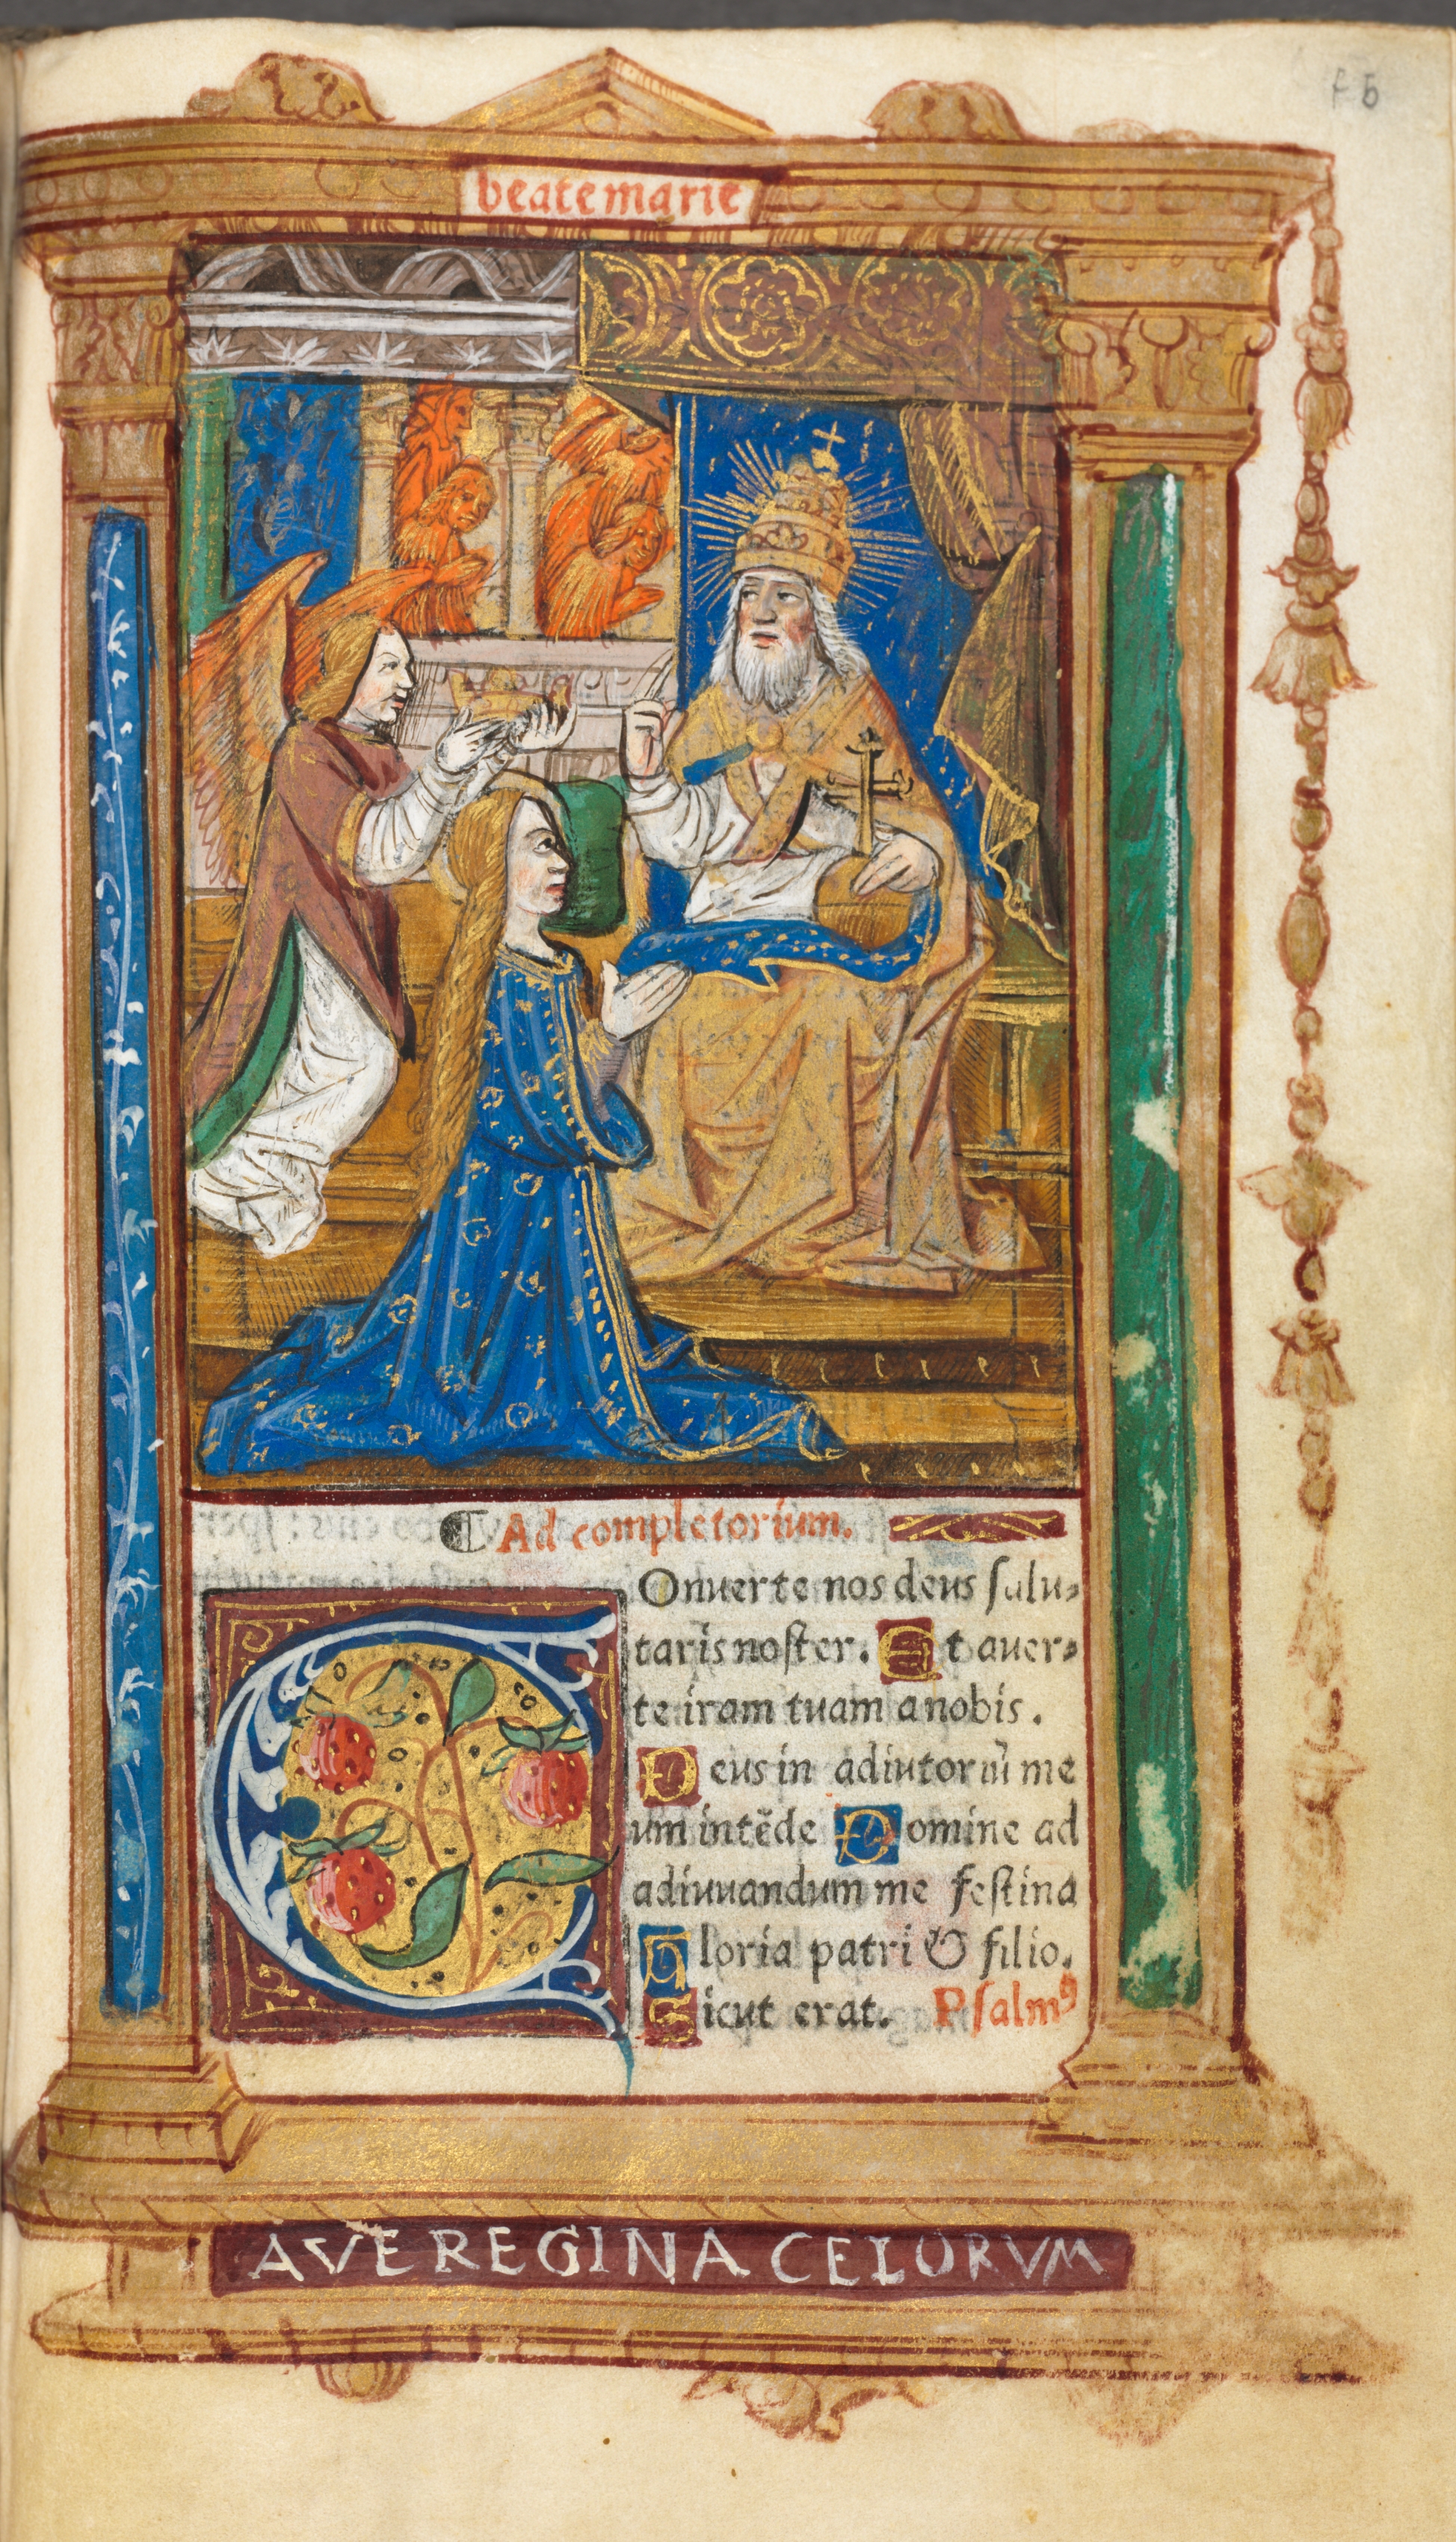 f 5
beate marie
¶ Ad completorium.
COnuerte nos deus salu-
taris noster. Et auer-
te iram tuam a nobis.
Deus in adiutoriũ me
um intẽde Domine ad
adiuuandum me festina
Gloria patri & filio.
Sicut erat. Psalmꝰ
AVE REGINA CELORVM